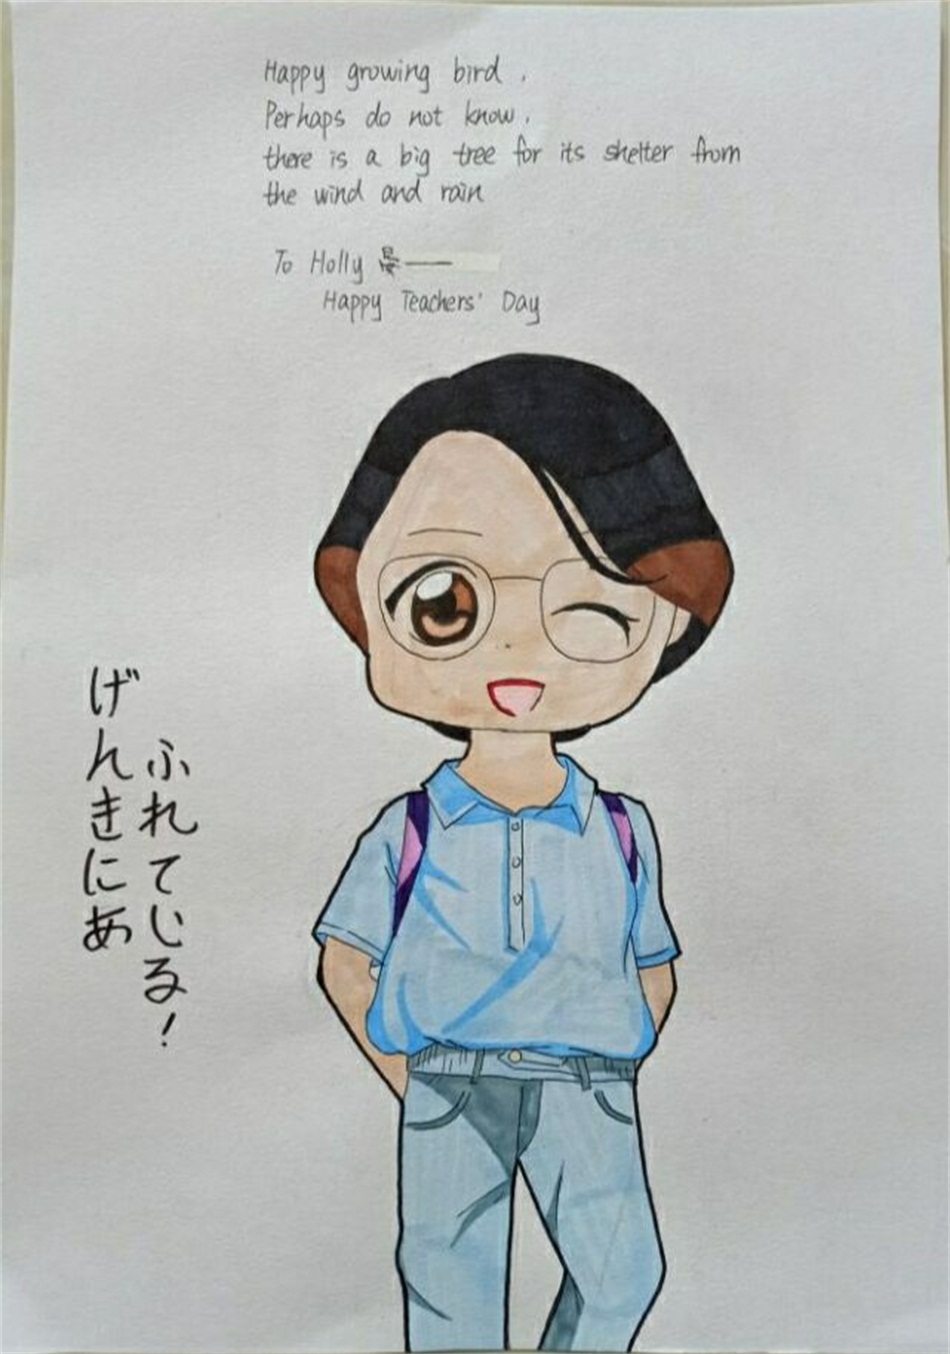 Happy growing bird.
Perhaps do not know,
there is a big tree for its shelter from
the wind and rain
To Holly 吴——
Happy Teachers' Day
げんきにあ
ふれている!